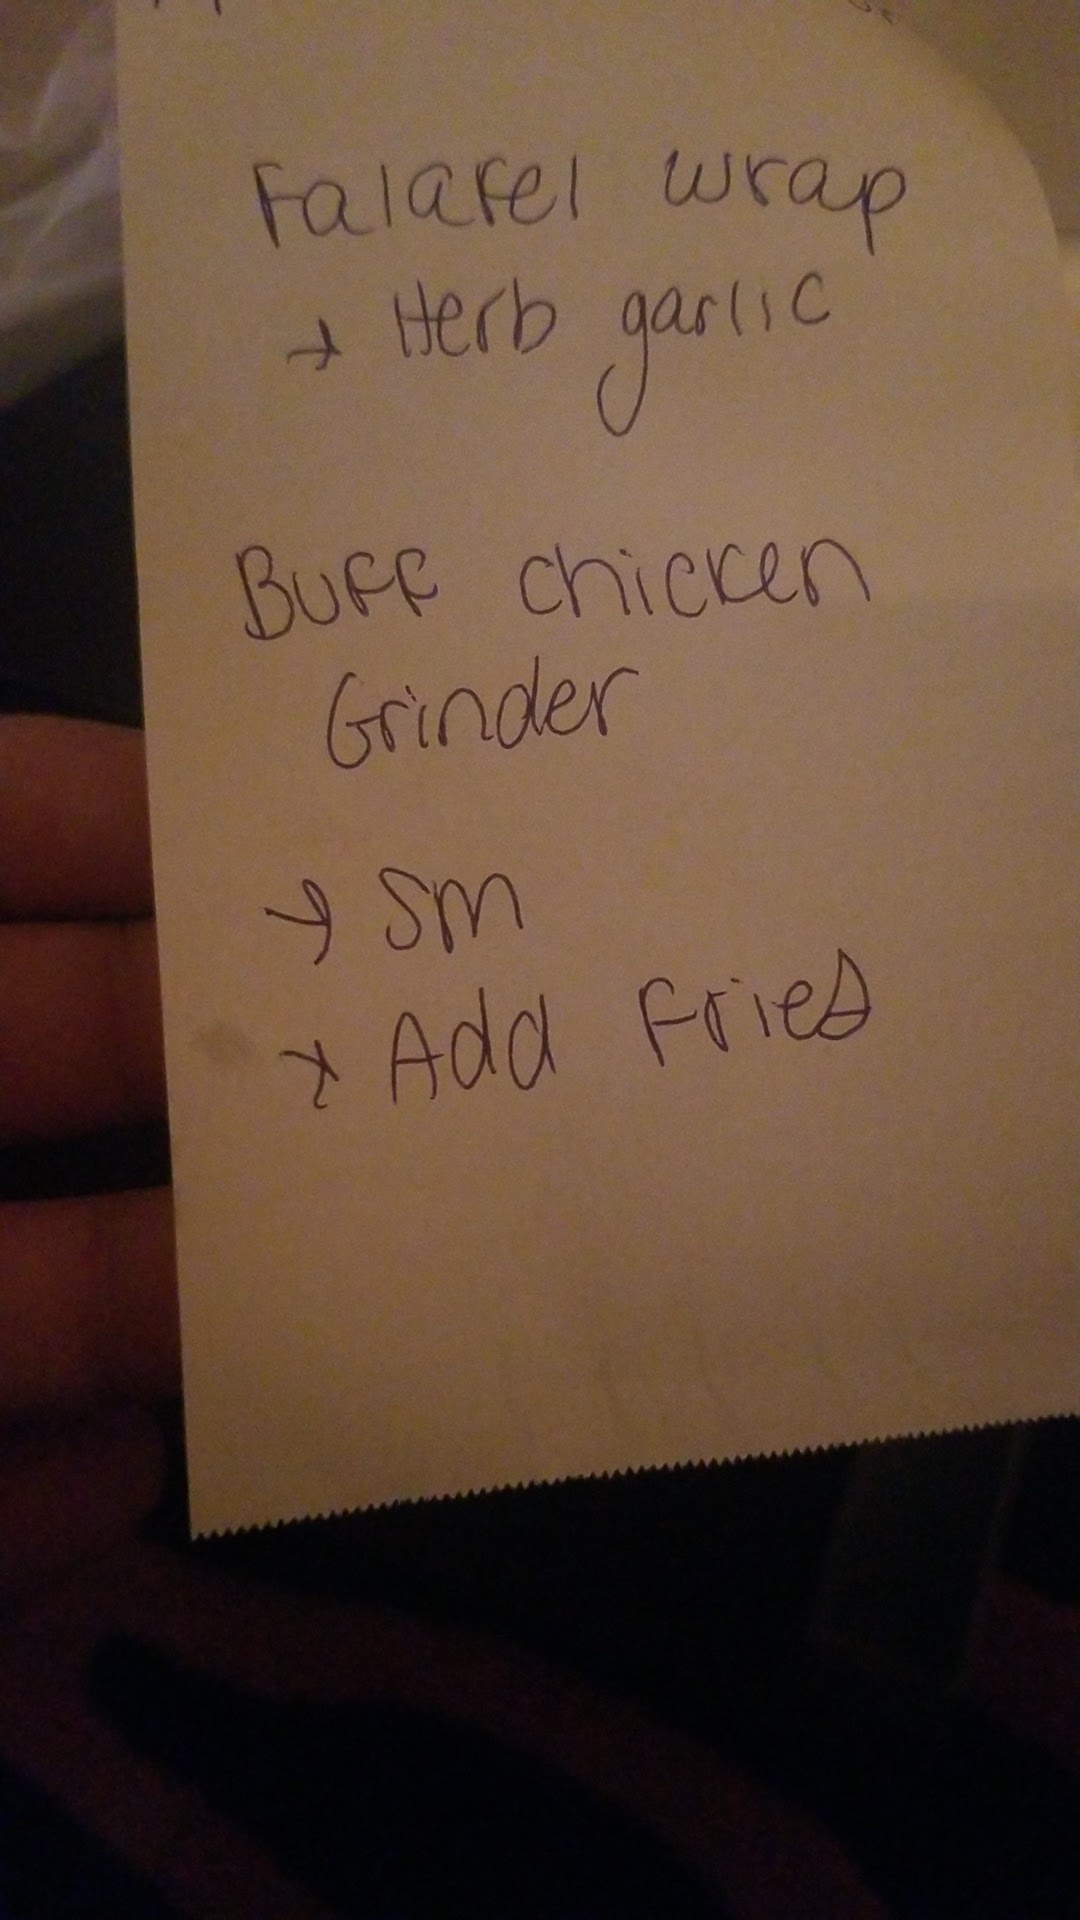 Falafel wrap
→ Herb garlic
Buff chicken
Grinder
→ sm
→ Add Fries